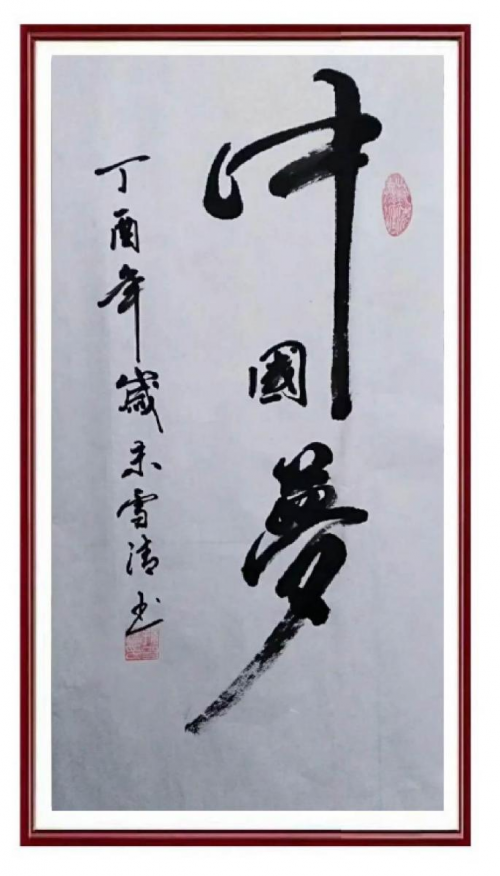 中國夢
丁酉年歲末雪清书